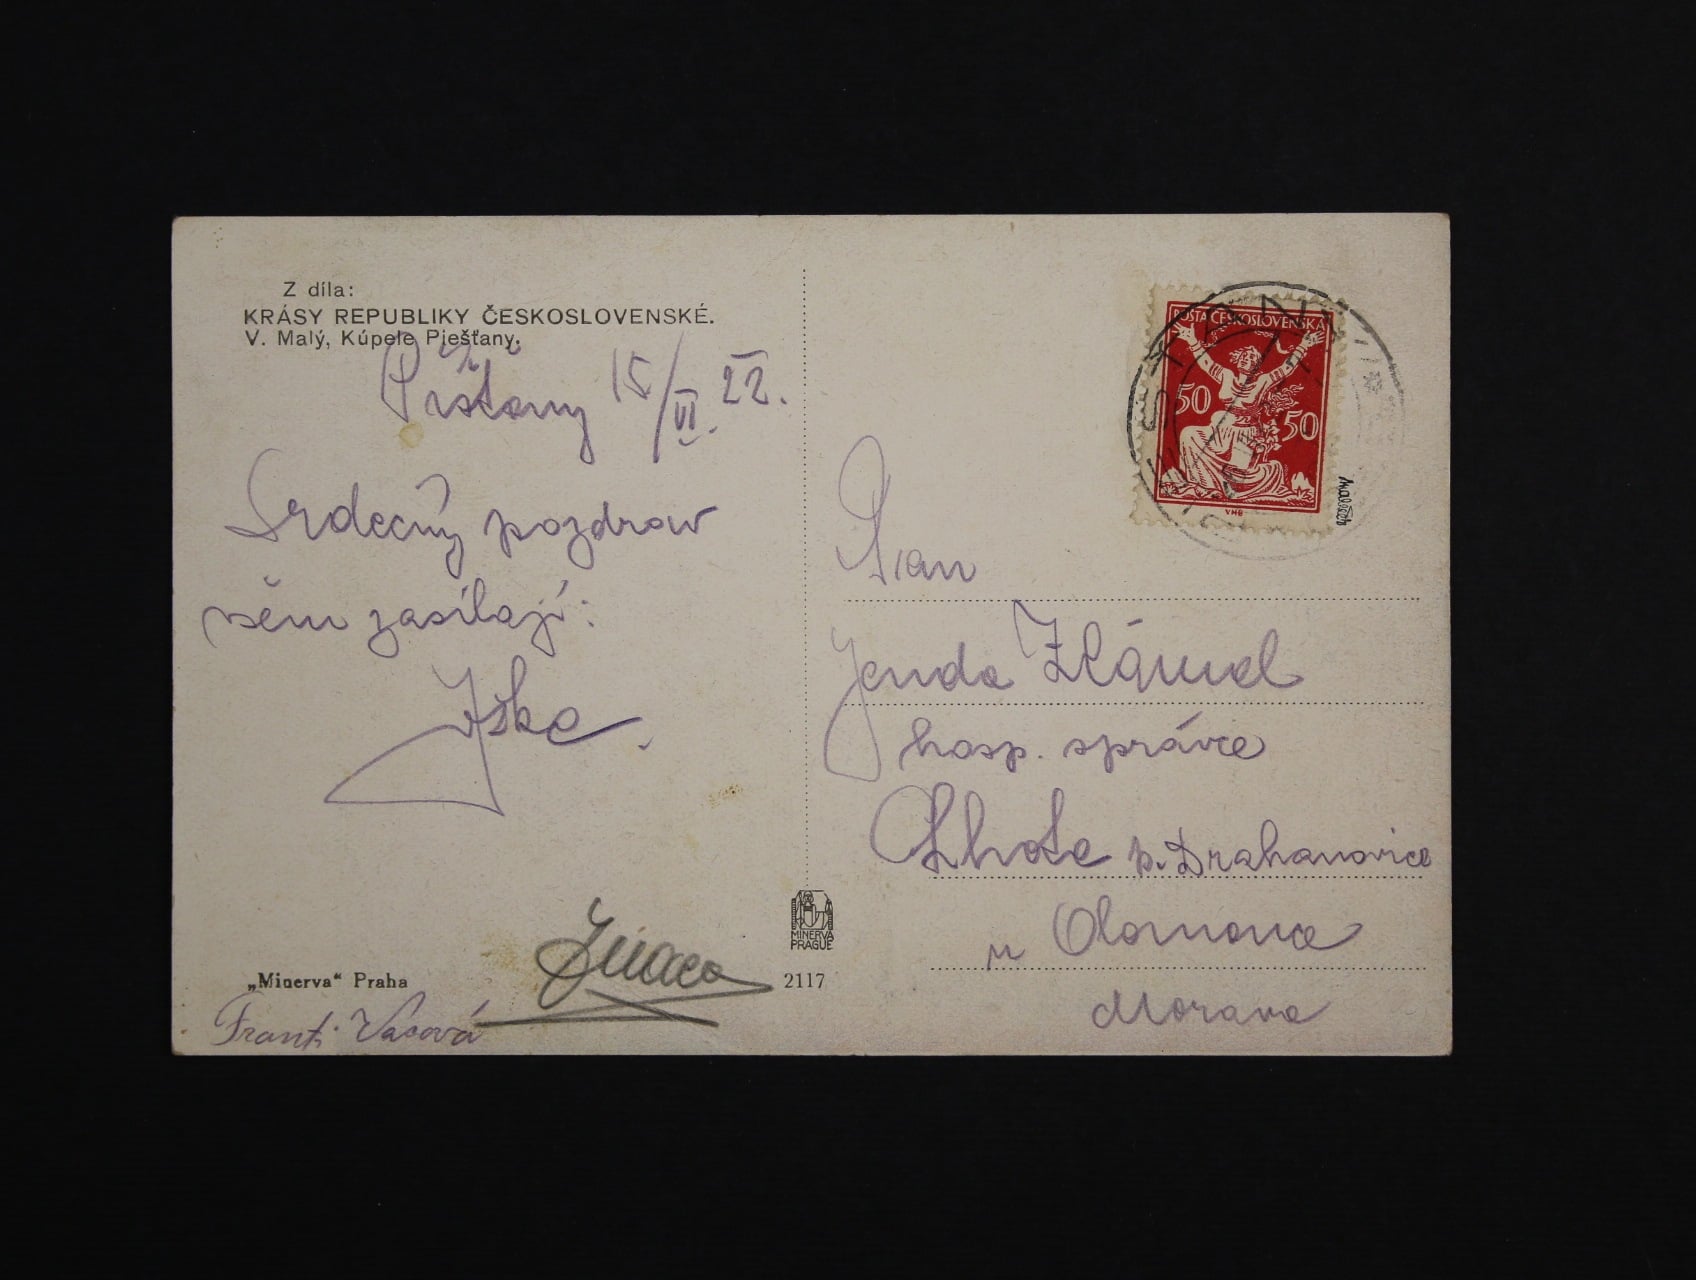 Z díla:
KRÁSY REPUBLIKY ČESKOSLOVENSKÉ.
V. Malý, Kúpele Piešťany.
Píšťany 15/VI. 22.
Srdečný pozdrav
všem zasílají:
"Minerva" Praha
Frant. Vacová
MINERVA
PRAGUE
2117
POŠTA ČESKOSLOVENSKÁ
50
50
Pan
Jenda Zlámal
hosp. správce
Lhota p. Drahanovice
u Olomouce
Morava